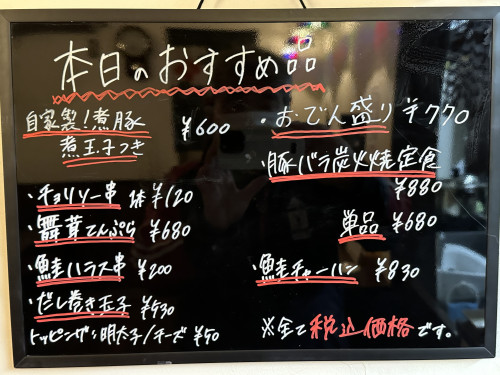 本日のおすすめ品
自家製!煮豚 ¥600
煮玉子つき
・チョリソー串 1本 ¥120
・舞茸てんぷら ¥680
・鮭ハラス串 ¥200
・だし巻き玉子 ¥530
トッピング:明太子/チーズ ¥50
・おでん盛り ¥770
・豚バラ炭火焼定食
¥880
単品 ¥680
・鮭チャーハン ¥830
※全て税込価格です。